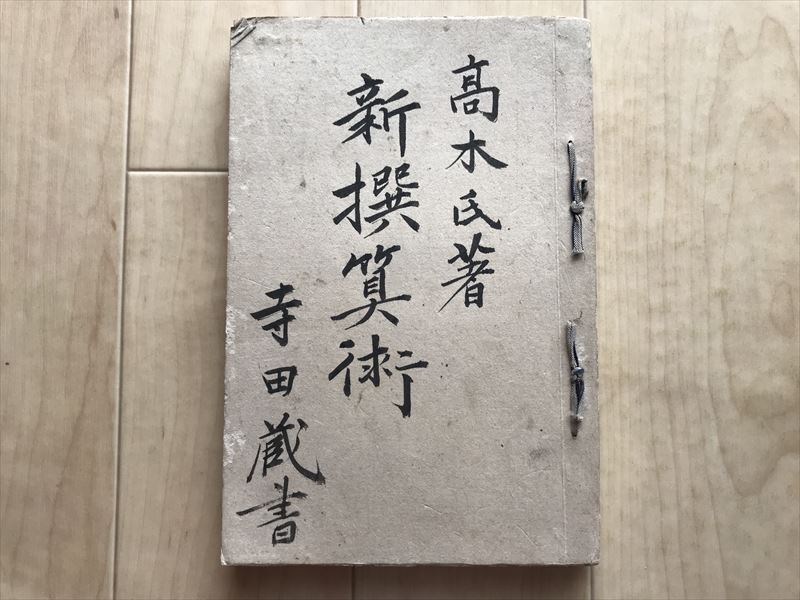 高木氏著
新撰算術
寺田蔵書